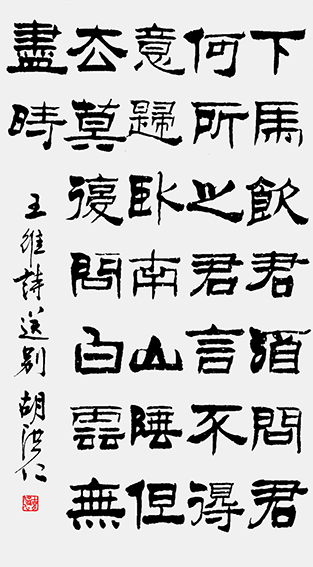 下馬飲君酒問君
何所之君言不得
意歸臥南山陲但
去莫復問白雲無
盡時
王維詩送别 胡洪仁